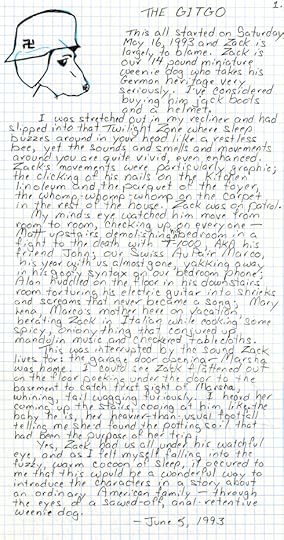 THE GITGO
1.
This all started on Saturday
May 16, 1993 and Zack is
largely to blame. Zack is
our 14 pound miniature
weenie dog who takes his
German heritage very
seriously. I've considered
buying him jack boots
and a helmet.
I was stretched out in my recliner and had
slipped into that Twilight Zone where sleep
buzzes around in your head like a restless
bee, yet the sounds and smells and movements
around you are quite vivid, even enhanced.
Zack's movements were particularly graphic;
the clicking of his nails on the kitchen
linoleum and the parquet of the foyer,
the whomp-whomp-whomp on the carpet
in the rest of the house. Zack was on patrol.
My minds eye watched him move from
room to room, checking up on everyone —
Matt upstairs demolishing bedroom in a
fight to the death with T-1000, AKA his
friend John; our Swiss Au Pair Marco,
his year with us almost gone, yakking away
in his goofy syntax on our bedroom phone;
Alan huddled on the floor in his downstairs
room torturing his electric guitar into shrieks
and screams that never became a song; Mary
Lena, Marco's mother here on vacation,
berating Zack in Italian while cooking some
spicy, oniony thing that conjured up
mandolin music and checkered tablecloths.
This was interrupted by the sound Zack
lives for: the garage door opening — Marsha
was home. I could see Zack flattened out
on the floor peeking under the door to the
basement to catch first sight of Marsha,
whining, tail wagging furiously. I heard her
coming up the stairs, cooing at him like the
baby he is, her heavier-than-usual footfall
telling me she'd found the potting soil that
had been the purpose of her trip.
Yes, Zack had us all under his watchful
eye, and as I felt myself falling into the
fuzzy, warm cocoon of sleep, it occured to
me that this would be a wonderful way to
introduce the characters in a story about
an ordinary American family — through
the eyes of a sawed-off, anal-retentive
weenie dog.
— June 5, 1993